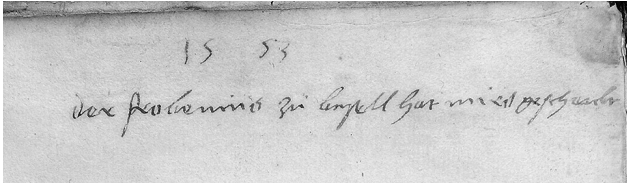 15 53
der frobenius zu basell hat mirs geschenkt